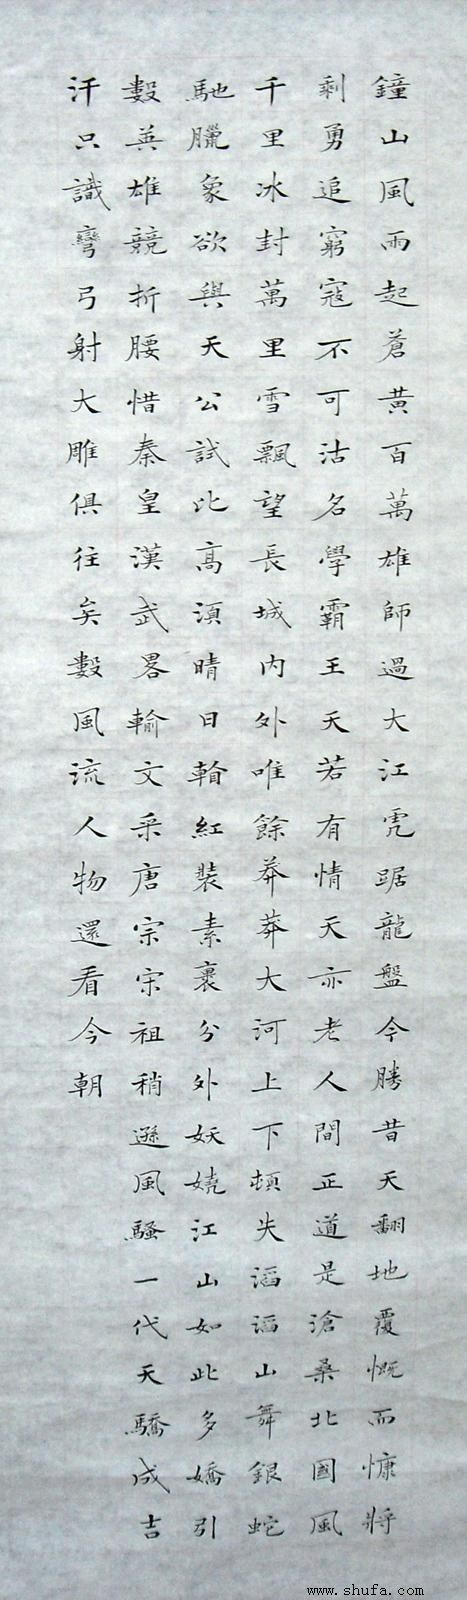 鐘山風雨起蒼黄百萬雄師過大江虎踞龍盤今勝昔天翻地覆慨而慷將
剩勇追窮寇不可沽名學霸王天若有情天亦老人間正道是滄桑北國風
千里冰封萬里雪飄望長城内外唯餘莽莽大河上下頓失滔滔山舞銀蛇
馳臘象欲與天公試比高須晴日紅裝素裹分外妖嬈江山如此多嬌引
數英雄競折腰惜秦皇漢武畧輸文采唐宗宋祖稍遜風騷一代天驕成吉
汗只識彎弓射大雕俱往矣數風流人物還看今朝
www.shufa.com